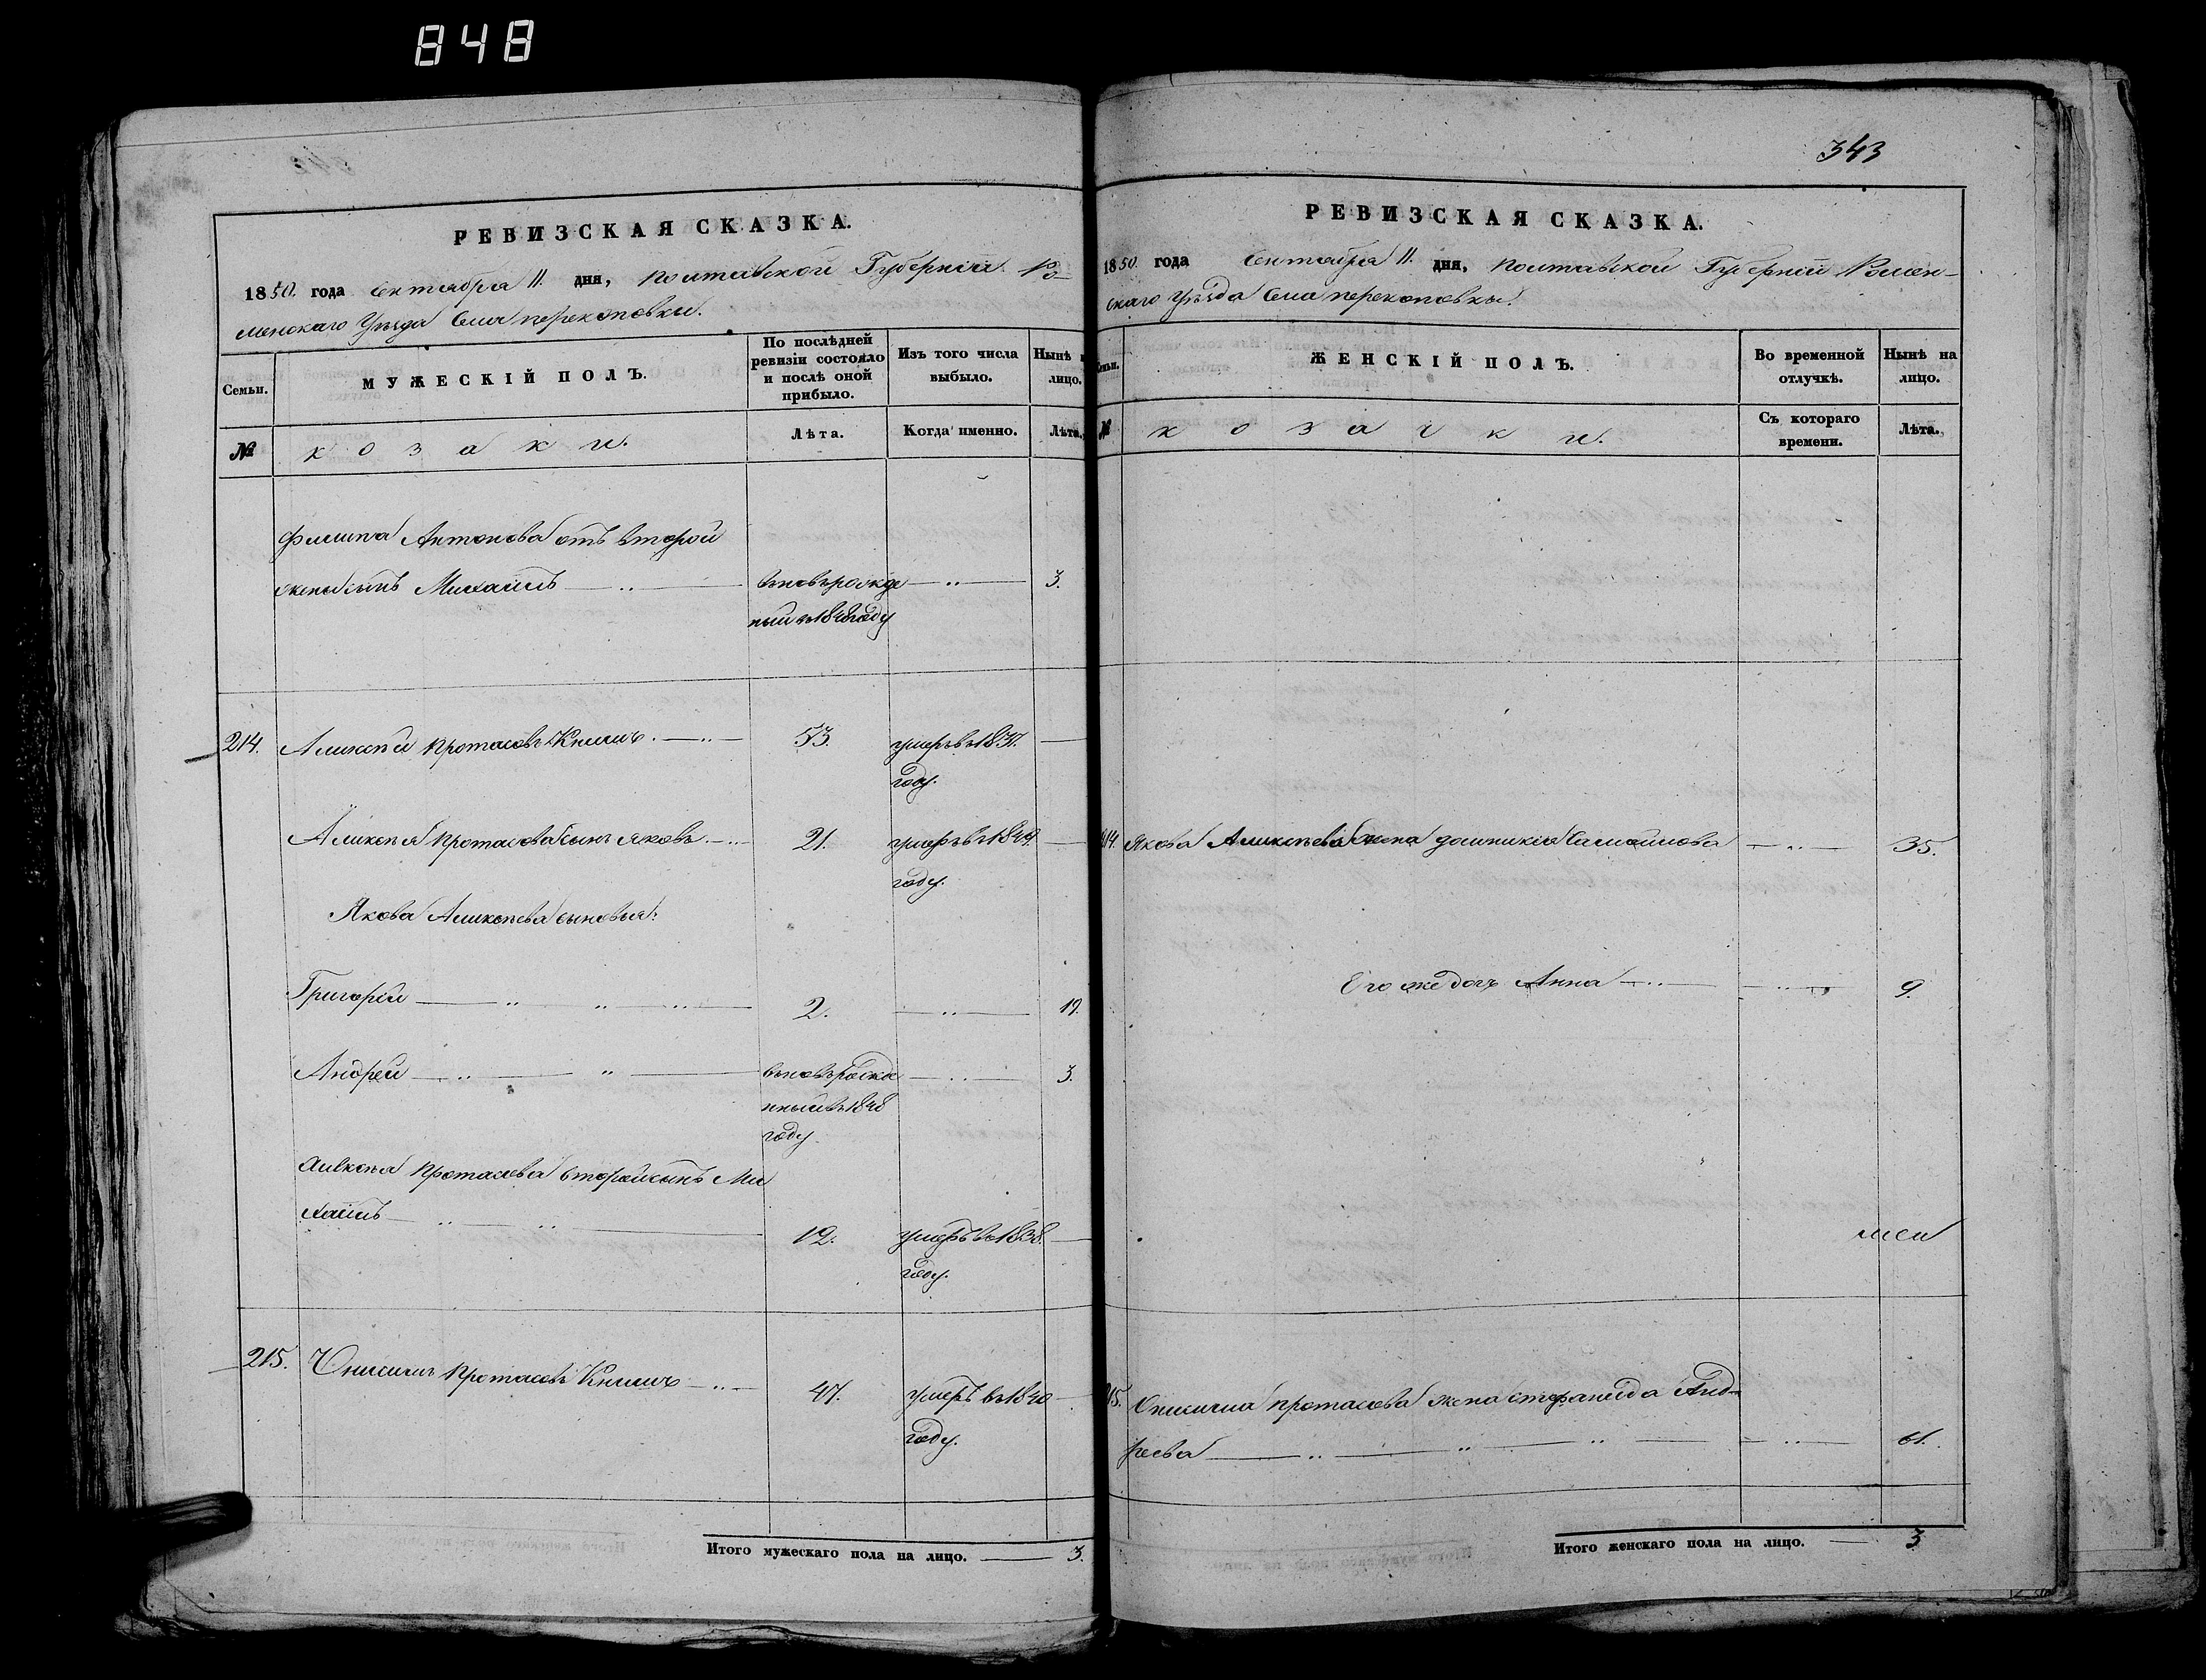 848
РЕВИЗСКАЯ СКАЗКА.
1850. года Сентября 11. дня, Полтавской Губерніи Ро-
менскаго Уѣзда Села перекоповки.
Семьи.
МУЖЕСКІЙ ПОЛЪ.
По послѣдней ревизіи состояло и послѣ оной прибыло.
Изъ того числа выбыло.
Нынѣ
лицо.
№
козаки.
Лѣта.
Когда именно.
Лѣта.
Филипа Антонова отъ второй
жены сынъ Михаилъ
вновь рожде
3.
ный въ 1848 году
214. Аликсѣй Протасовъ Книшъ.
53.
умеръ въ 1837.
году.
Аликсѣя Протасова сынъ Яковъ.
21.
умеръ въ 1849.
году.
Якова Аликсѣева сыновья:
Григорій
2.
19.
Андрей
вновь рожде
3.
нный въ 1848
году.
Аликсѣя Протасова второй сынъ Ми
хаилъ
12.
умеръ въ 1838.
году.
215. Онисимъ Протасовъ Книшъ
47.
умеръ въ 1840
году.
Итого мужескаго пола на лицо. 3.
343
РЕВИЗСКАЯ СКАЗКА.
1850 года Сентября 11. дня, Полтавской Губерніи Ромен-
скаго Уѣзда Села перекоповки.
ЖЕНСКІЙ ПОЛЪ.
Во временной отлучкѣ.
Нынѣ на лицо.
№
козачки.
Съ котораго времени.
Лѣта.
214. Якова Аликсѣева жена домникія Самойлова
35.
Его же дочь Анна
9.
215. Онисима протасова жена стефанида Анд-
реева
61.
Итого женскаго пола на лицо. 3